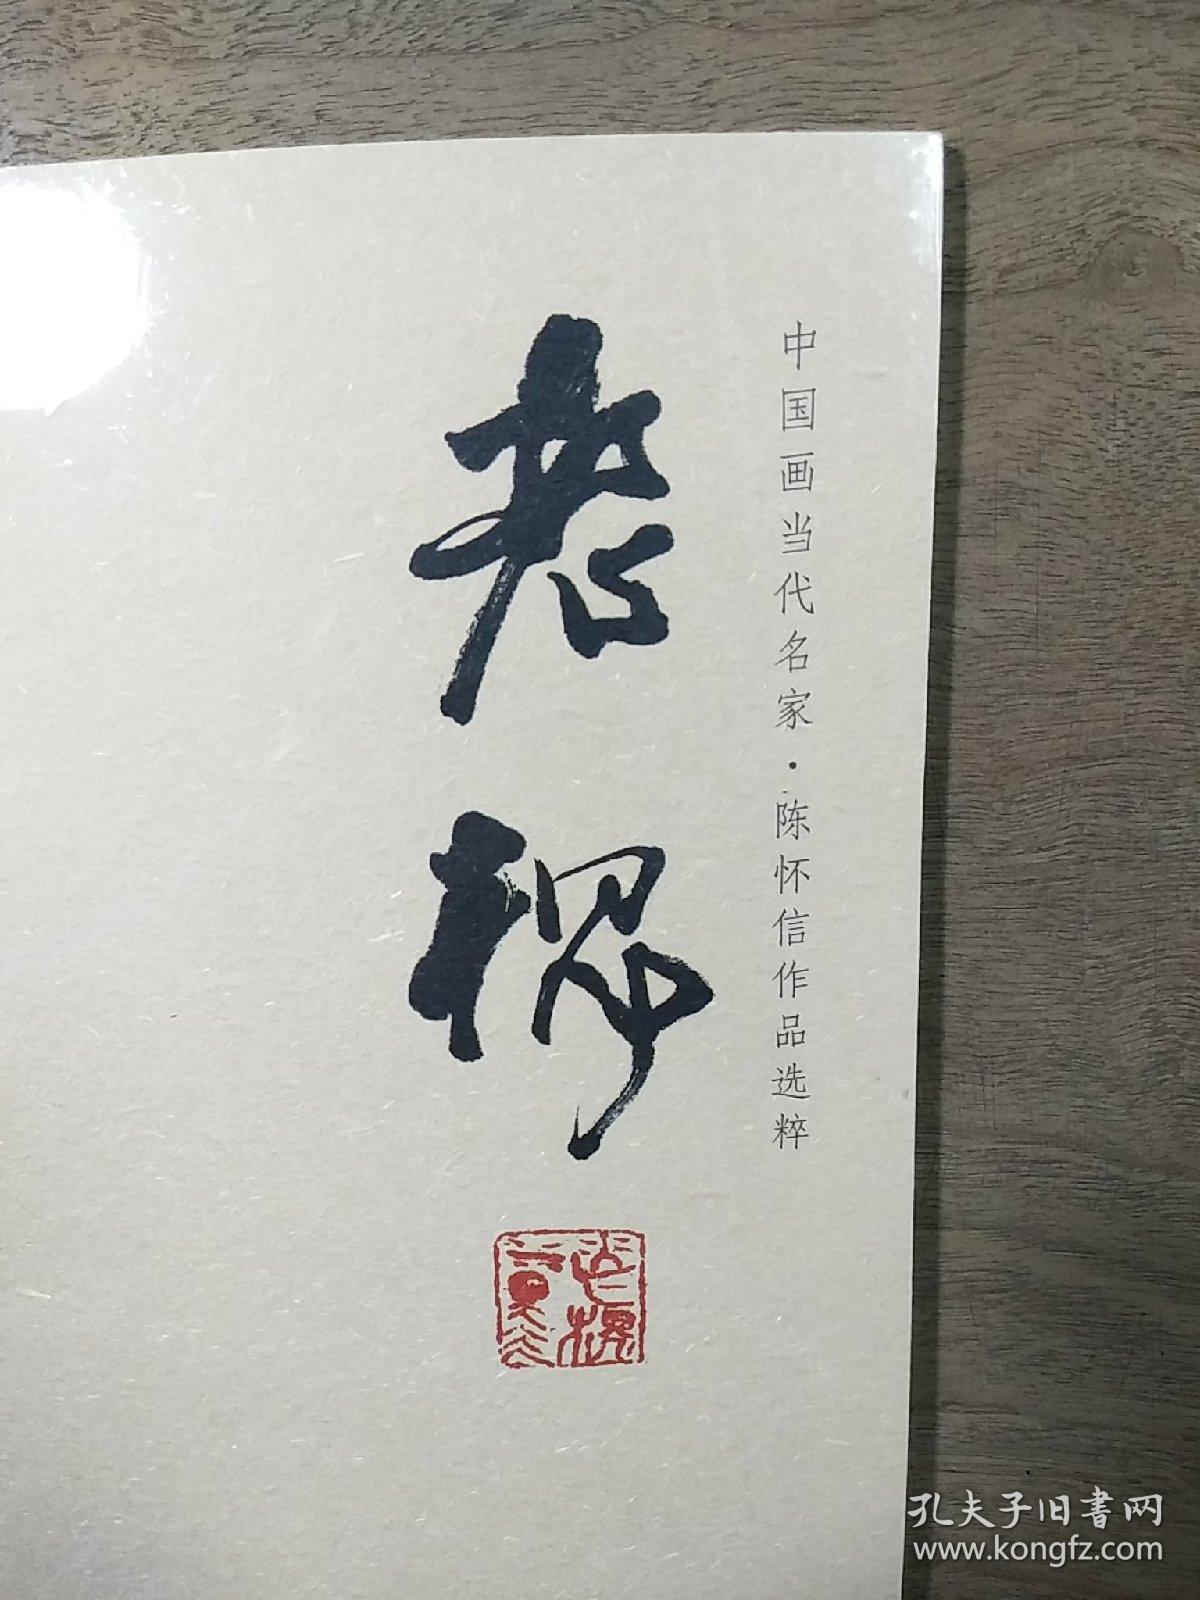 中国画当代名家·陈怀信作品选粹
老槐
孔夫子旧書网
www.kongfz.com